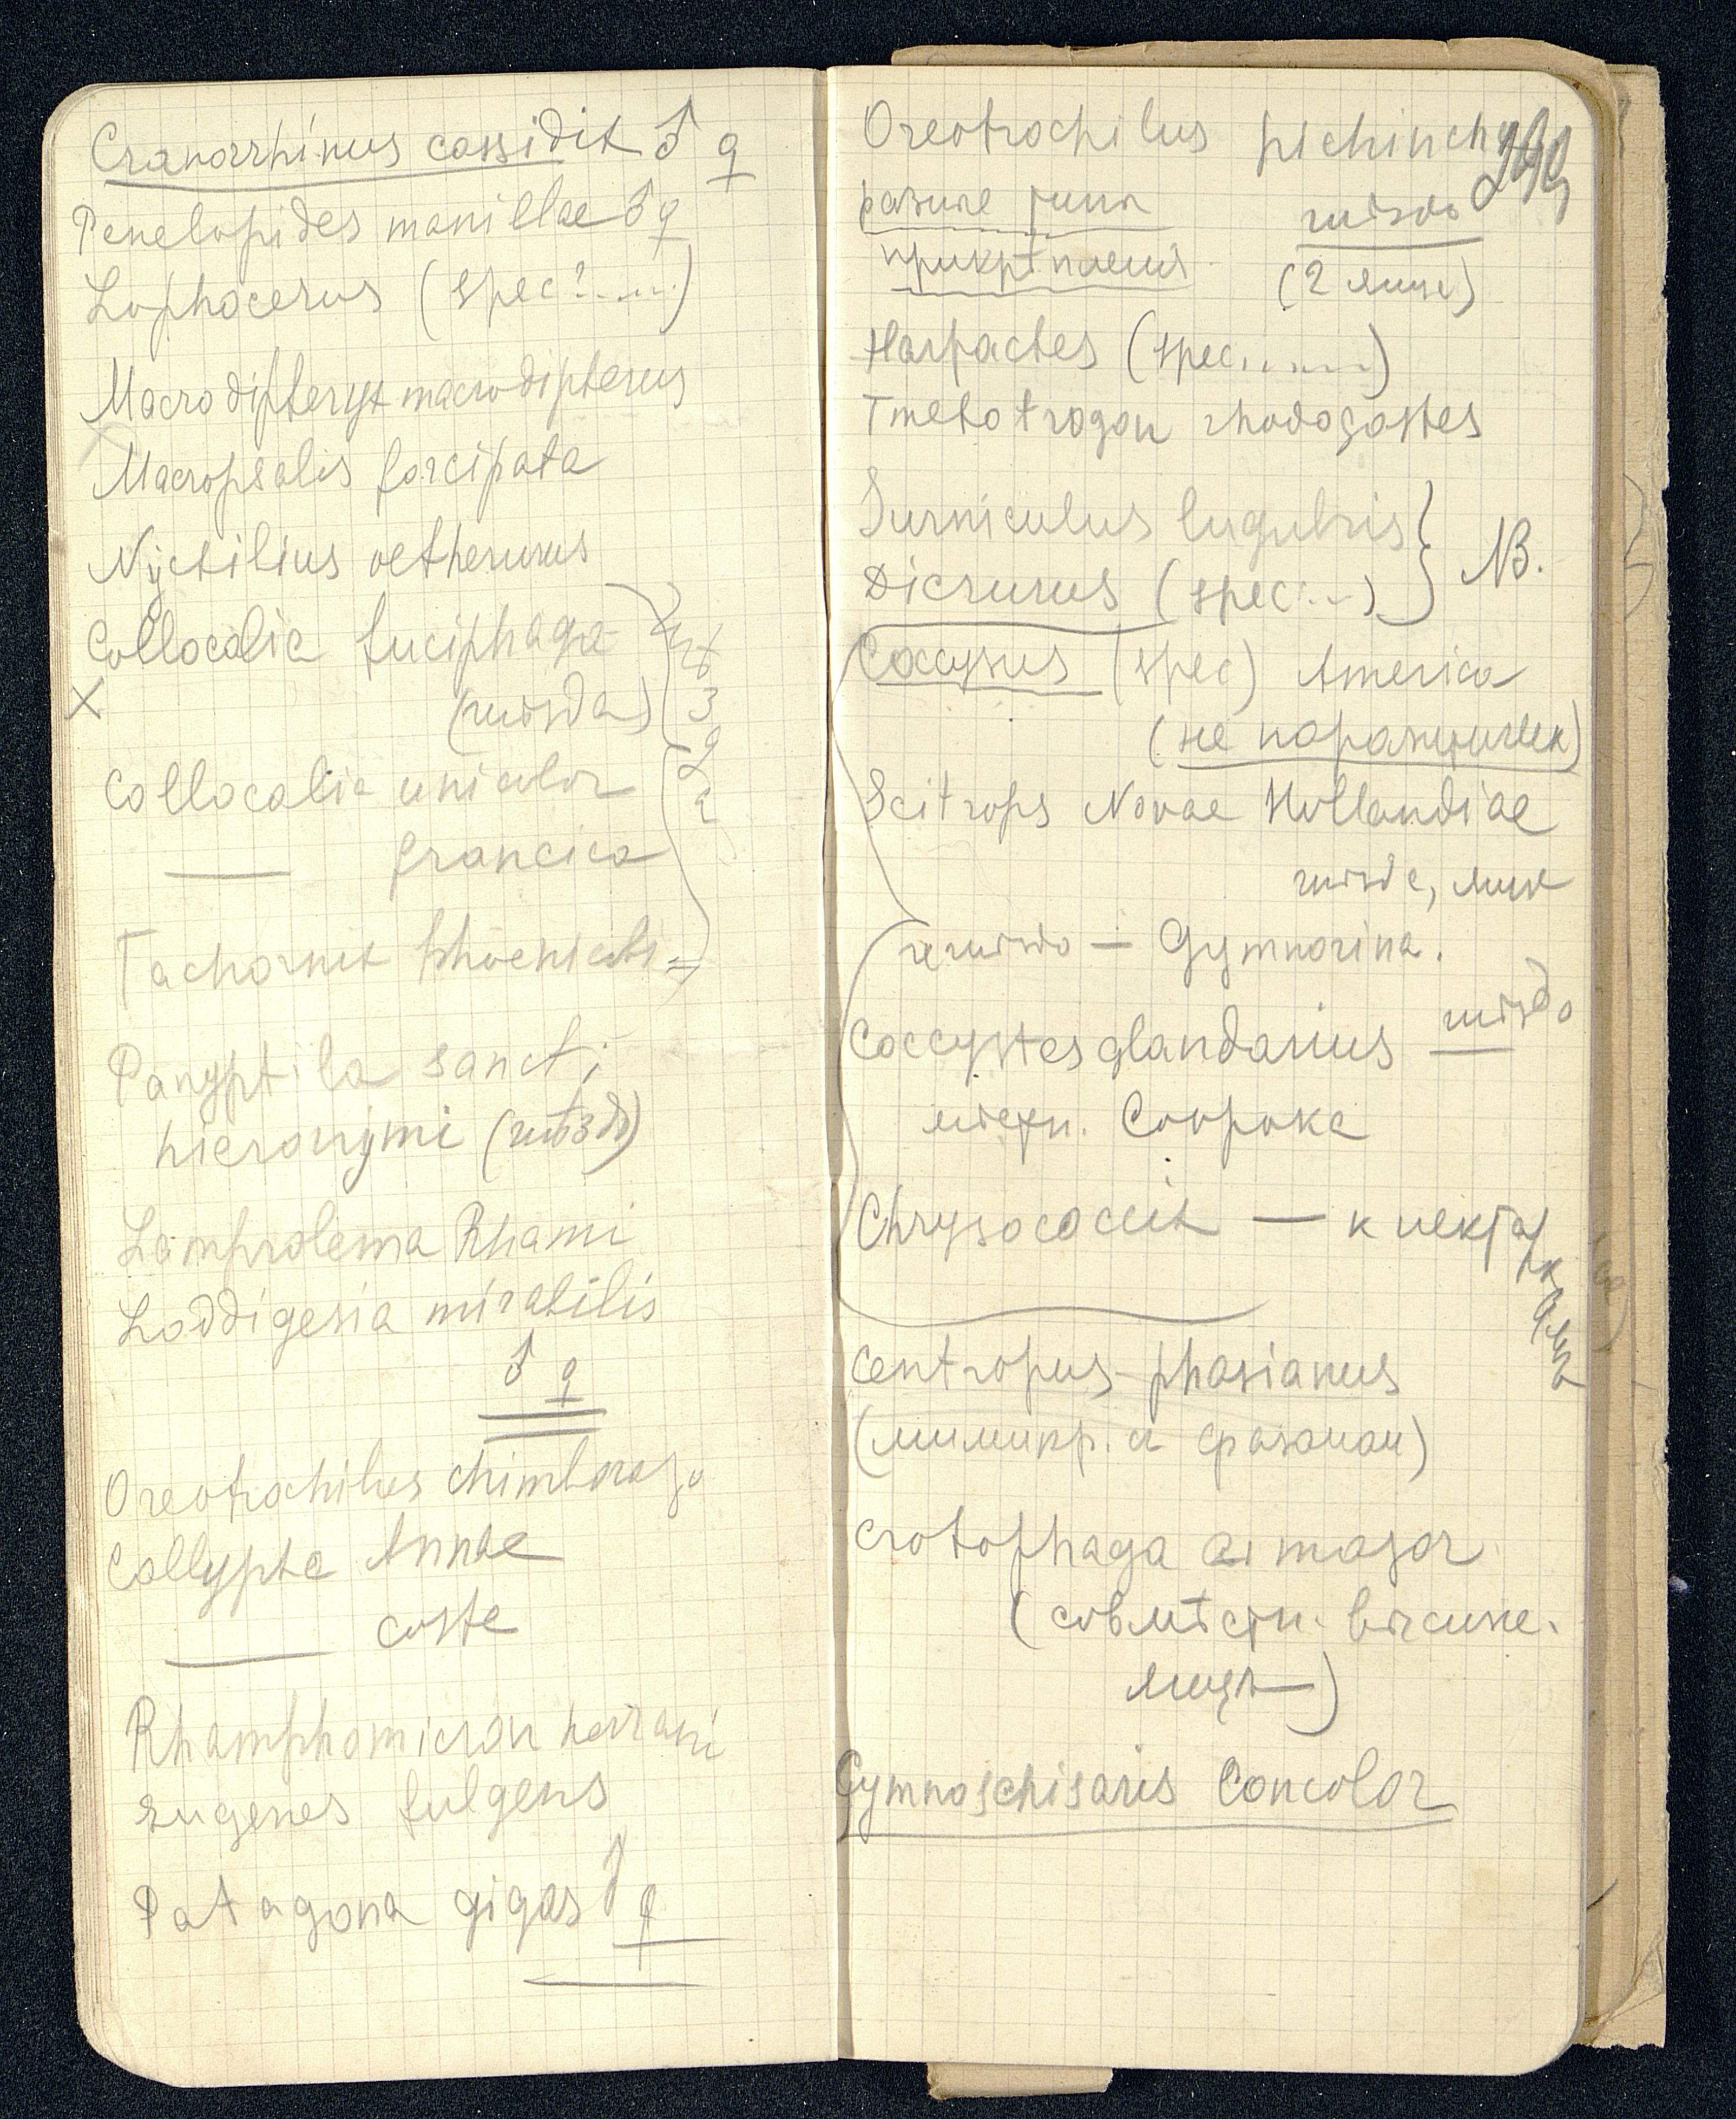 Cranorrhinus cassidix ♂ ♀
Penelopides manillae ♂ ♀
Lophocerus (spec?.....)
Macrodipteryx macrodipterus
Macropsalis forcipata
Nyctilius aetherurus
Collocalia fuciphaga
(гнѣзда)
Collocalia unicolor
—— francica
Tachornis phoenicobi=
Panyptila sancti
hieronymi (гнѣзд)
Lamprolema Rhami
Loddigesia mirabilis
♂ ♀
Oreotrochilus chimborazo
Callypte Annae
—— coste
Rhamphomicron herrani
Eugenes fulgens
Patagona gigas ♂ ♀
Oreotrochilus pichincha
разные типы гнѣздо
прикрѣпленія (2 яйца)
Harpactes (spec......)
Tmetotrogon rhodogaster
Surniculus lugubris
Dicrurus (spec...) } NB.
Coccyzus (spec) America
(не паразитичен)
Scitrops Novae Hollandiae
гнѣзда, яйца
гнѣздо — Gymnorina.
Coccystes glandarius гнѣздо
Соорока
Chrysococcix — к нектар
Centropus phasianus
(мимикр. и фазанам)
Crotophaga ai major
(совмѣстн. высиж.
яицъ)
Gymnoschisaris Concolor